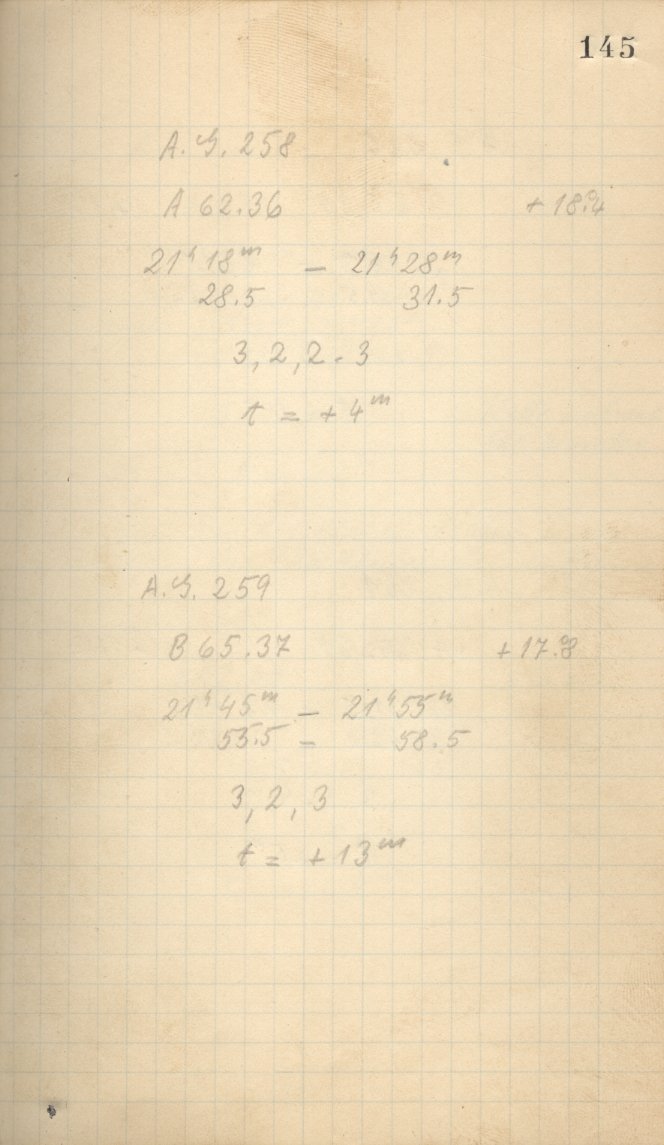 145
A.G. 258
A 62.36 +18.°4
21ʰ18ᵐ — 21ʰ28ᵐ
28.5 31.5
3, 2, 2-3
t = +4ᵐ
A.G. 259
B 65.37 +17.°8
21ʰ45ᵐ — 21ʰ55ᵐ
55.5 — 58.5
3, 2, 3
t = +13ᵐ